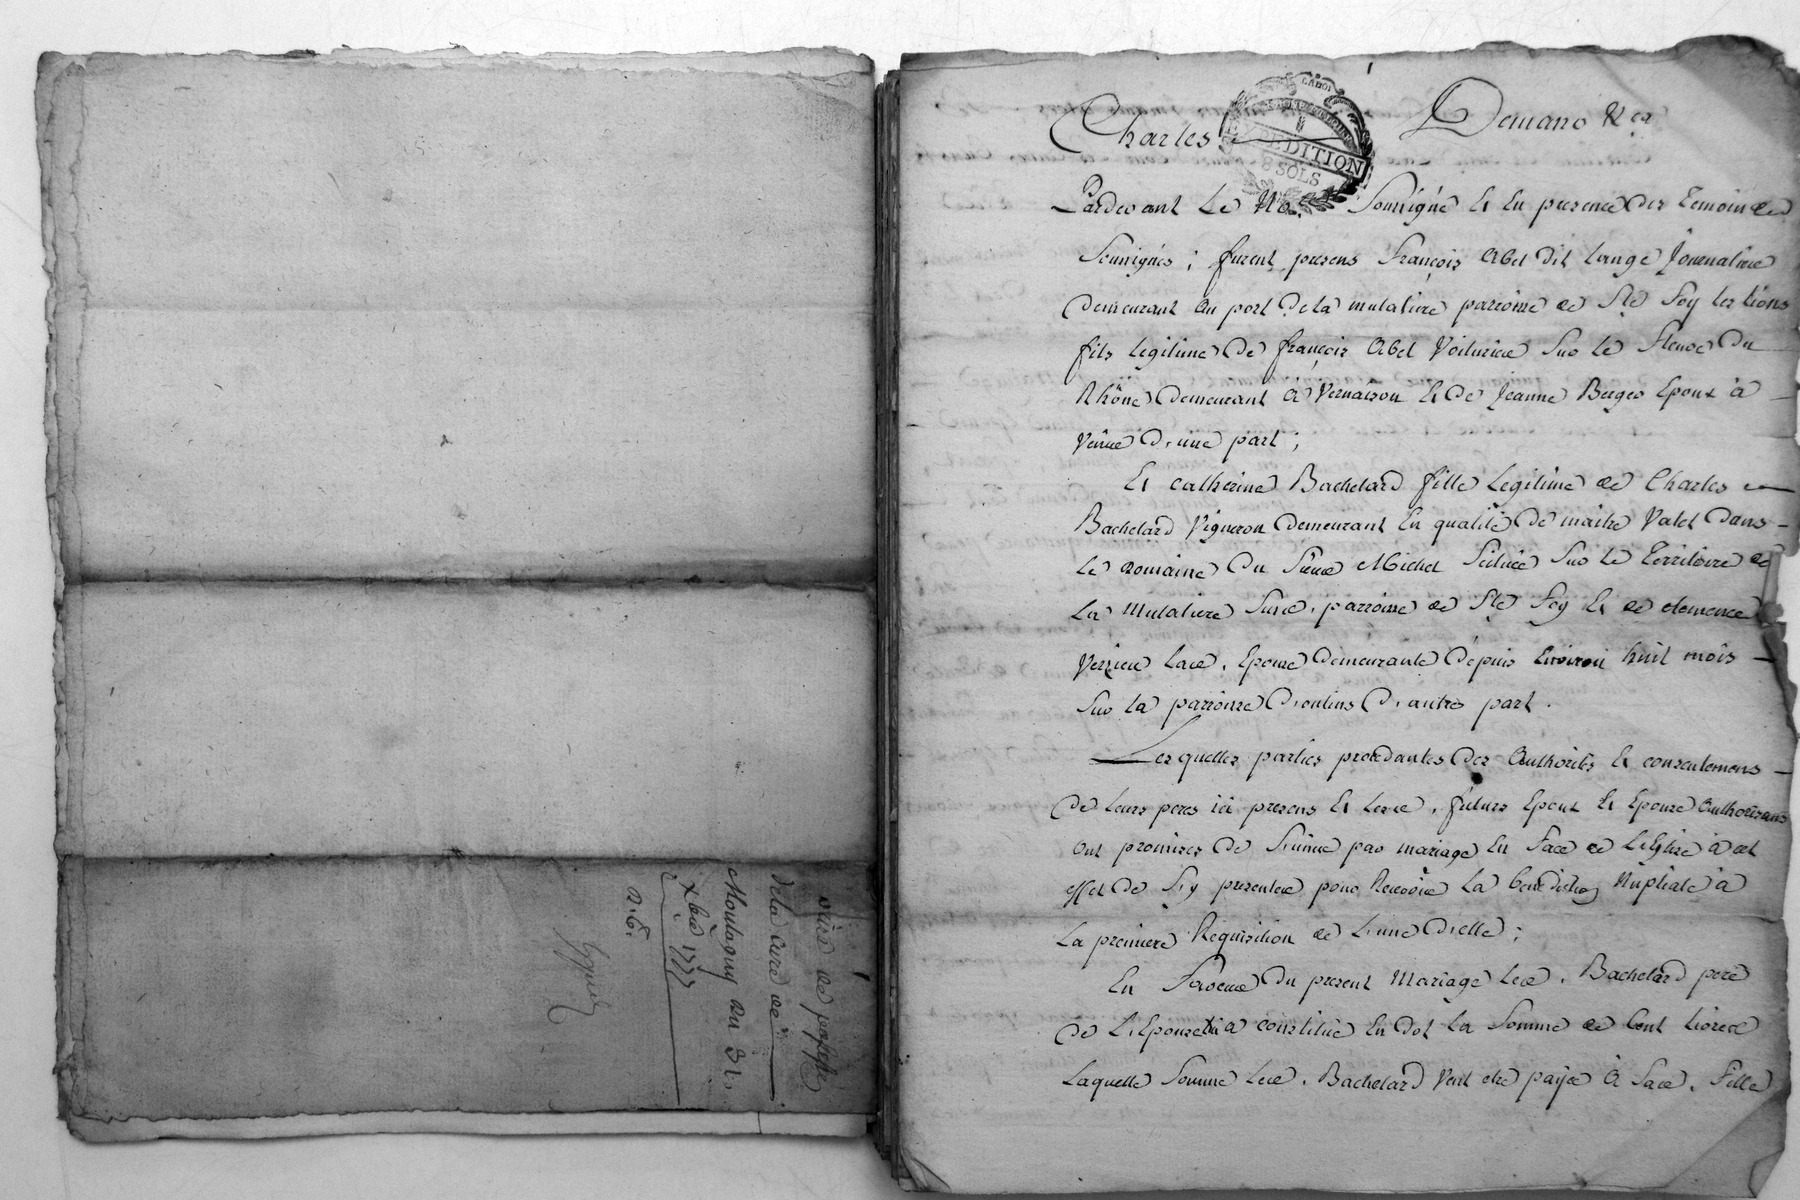 de la cure de
Montagny du 31.
xbre 1777
n.° 6.
Charles Demans
CABOT
EXPEDITION
8 SOLS
Pardevant Le No.re Soussigné Et En presence des Temoins
Soussignés ; furent presens François Abel dit Lange Journalier
demeurant au port de la mulatiere parroisse de Ste Foy les Lions
fils legitime De françois Abel Voiturier Sur Le fleuve Du
Rhône Demeurant à Vernaison Et De Jeanne Berger Epoux à
Venir D'une part ;
Et Catherine Bachelard fille Legitime de Charles
Bachelard Vigneron Demeurant En qualité De maitre Valet Dans
Le Domaine Du Sieur Michel Scitué Sur Le Territoire de
La Mulatiere Susd. parroisse de Ste Foy Et de clemence
Verrieu Lad. Epouse Demeurante Depuis Environ huit mois
Sur La parroisse D'oulins D'autre part .
Lesquelles parties procedantes Des Authorités Et consentemens
De Leurs peres ici presens Et Lesd. futurs Epoux Et Epouse Authorisans
Ont promises De S'unir par mariage En Face de L'Eglise à cet
effet De S'y presenter pour Recevoir La benediction Nuptiale à
La premiere Requisition de L'une D'elle ;
En Faveur Du present Mariage Led. Bachelard pere
De L'Epouse a constitué En dot La Somme de Cent Livres
Laquelle Somme Led. Bachelard Veut etre payée à Sad. Fille